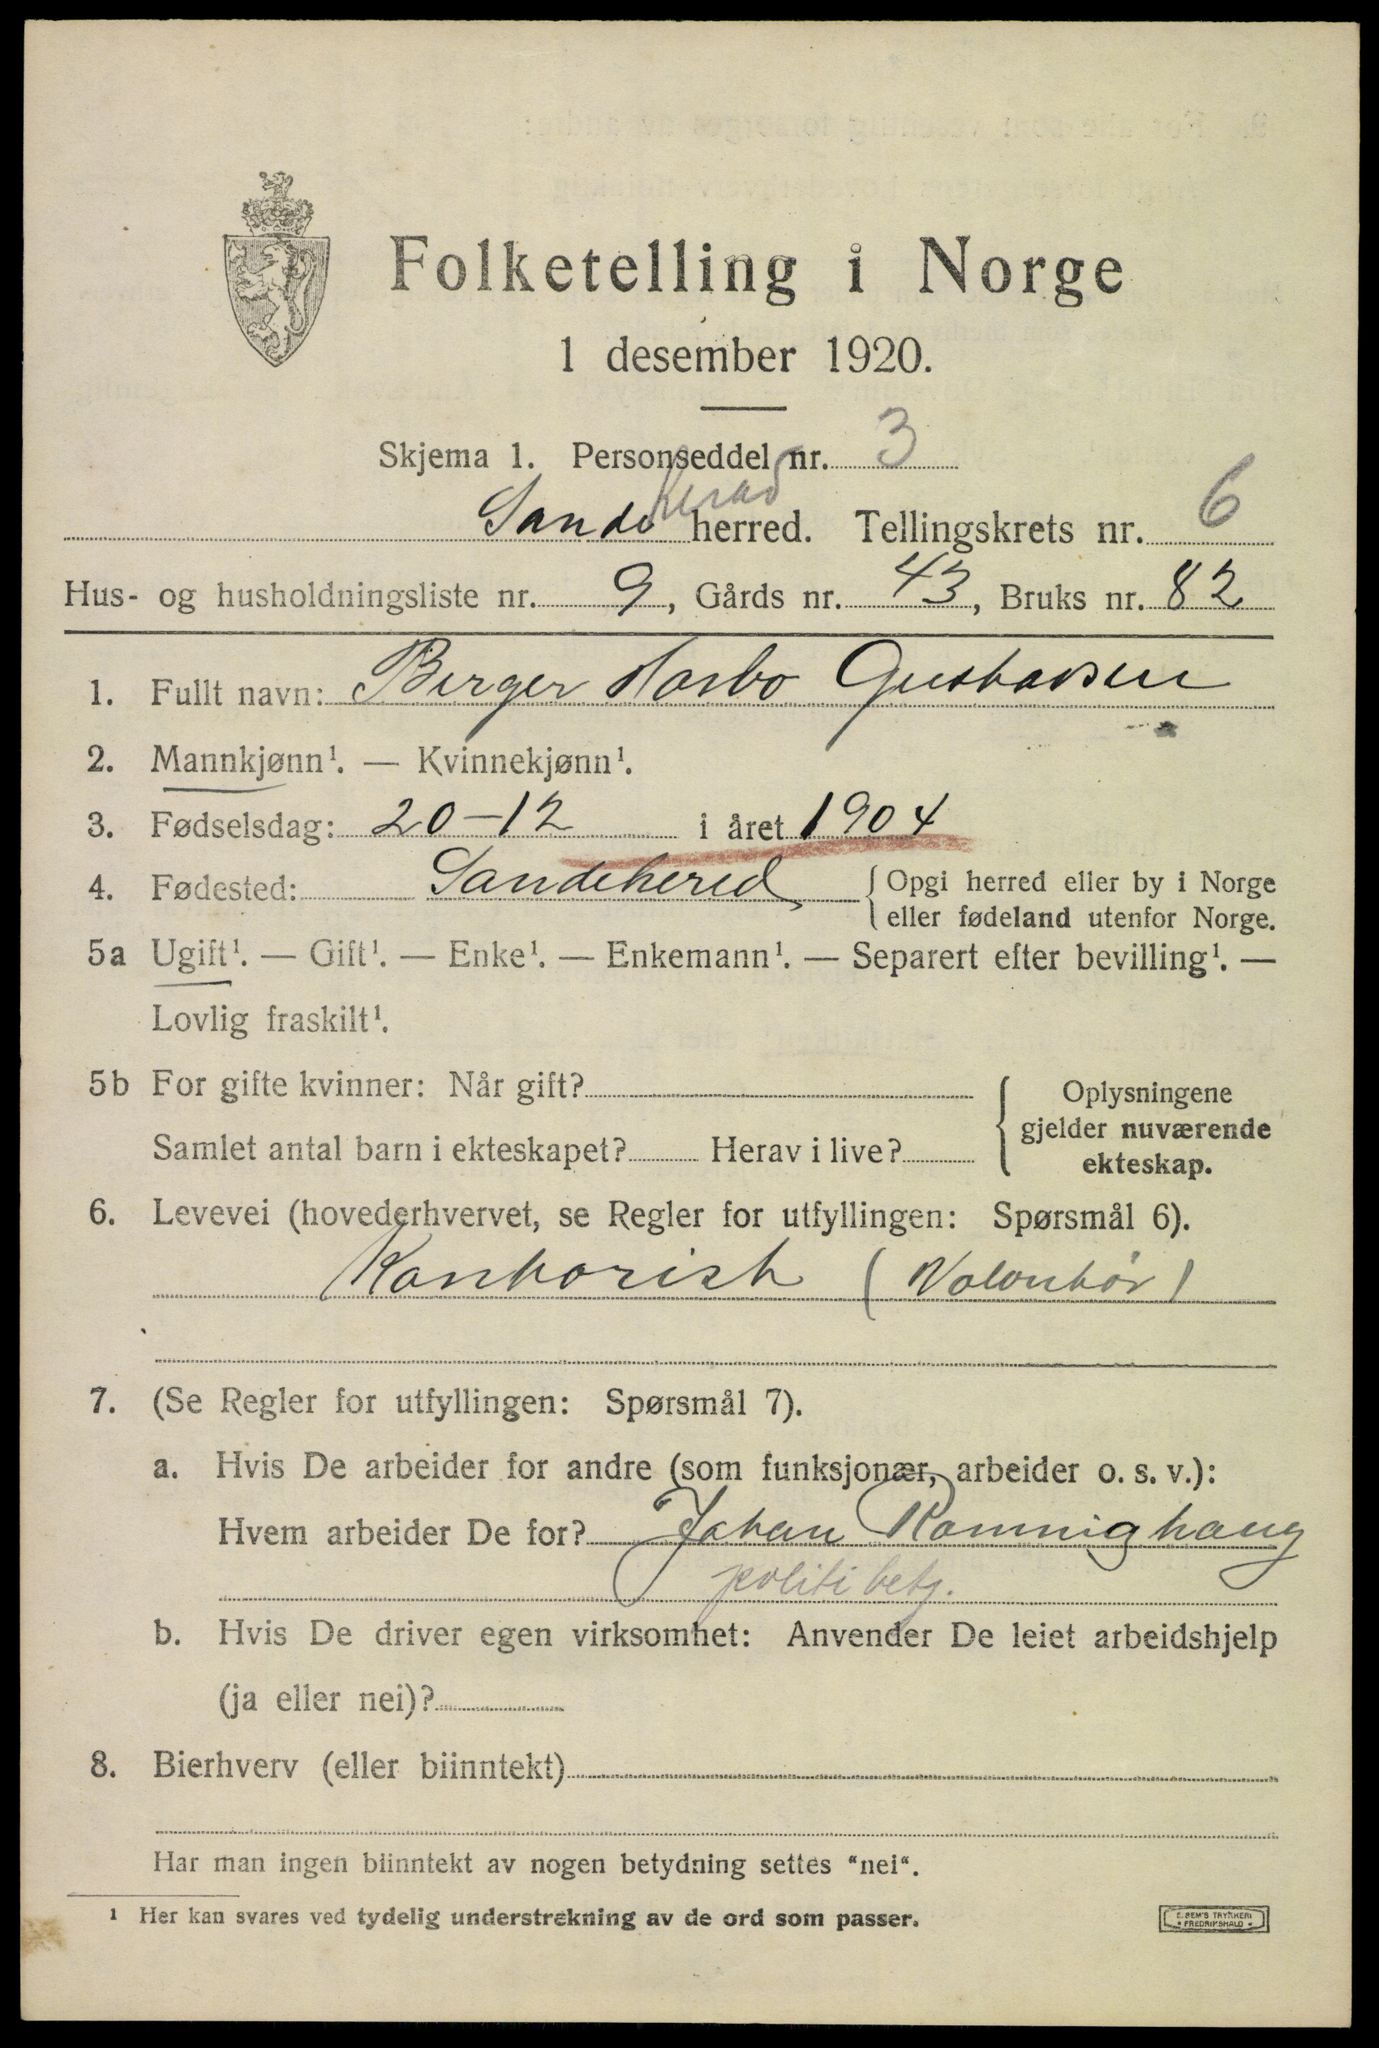 Folketelling i Norge
1 desember 1920.
Skjema 1. Personseddel nr. 3
Sande herad herred. Tellingskrets nr. 6
Hus- og husholdningsliste nr. 9, Gårds nr. 43, Bruks nr. 82
1. Fullt navn: Birger Gustavsen
2. Mannkjønn¹. — Kvinnekjønn¹.
3. Fødselsdag: 20-12 i året 1904
4. Fødested: Sandehered { Opgi herred eller by i Norge
eller fødeland utenfor Norge.
5a Ugift¹. — Gift¹. — Enke¹. — Enkemann¹. — Separert efter bevilling¹. —
Lovlig fraskilt¹.
5b For gifte kvinner: Når gift? { Oplysningene
gjelder nuværende
Samlet antal barn i ekteskapet? Herav i live?
ekteskap.
6. Levevei (hovederhvervet, se Regler for utfyllingen: Spørsmål 6).
Kontorist (Volontør)
7. (Se Regler for utfyllingen: Spørsmål 7).
a. Hvis De arbeider for andre (som funksjonær, arbeider o. s. v.):
Hvem arbeider De for? Johan
politi betj.
b. Hvis De driver egen virksomhet: Anvender De leiet arbeidshjelp
(ja eller nei)?
8. Bierhverv (eller biinntekt)
Har man ingen biinntekt av nogen betydning settes "nei".
¹ Her kan svares ved tydelig understrekning av de ord som passer.
E. SEM'S TRYKKERI
FREDRIKSHALD